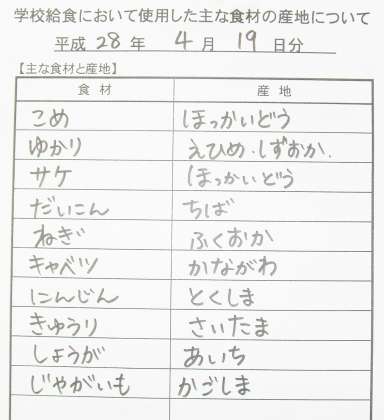 学校給食において使用した主な食材の産地について
平成 28 年 4 月 19 日分
【主な食材と産地】
食材 産地
こめ ほっかいどう
ゆかり えひめ・しずおか.
サケ ほっかいどう
だいこん ちば
ねぎ ふくおか
キャベツ かながわ
にんじん とくしま
きゅうり さいたま
しょうが あいち
じゃがいも かごしま